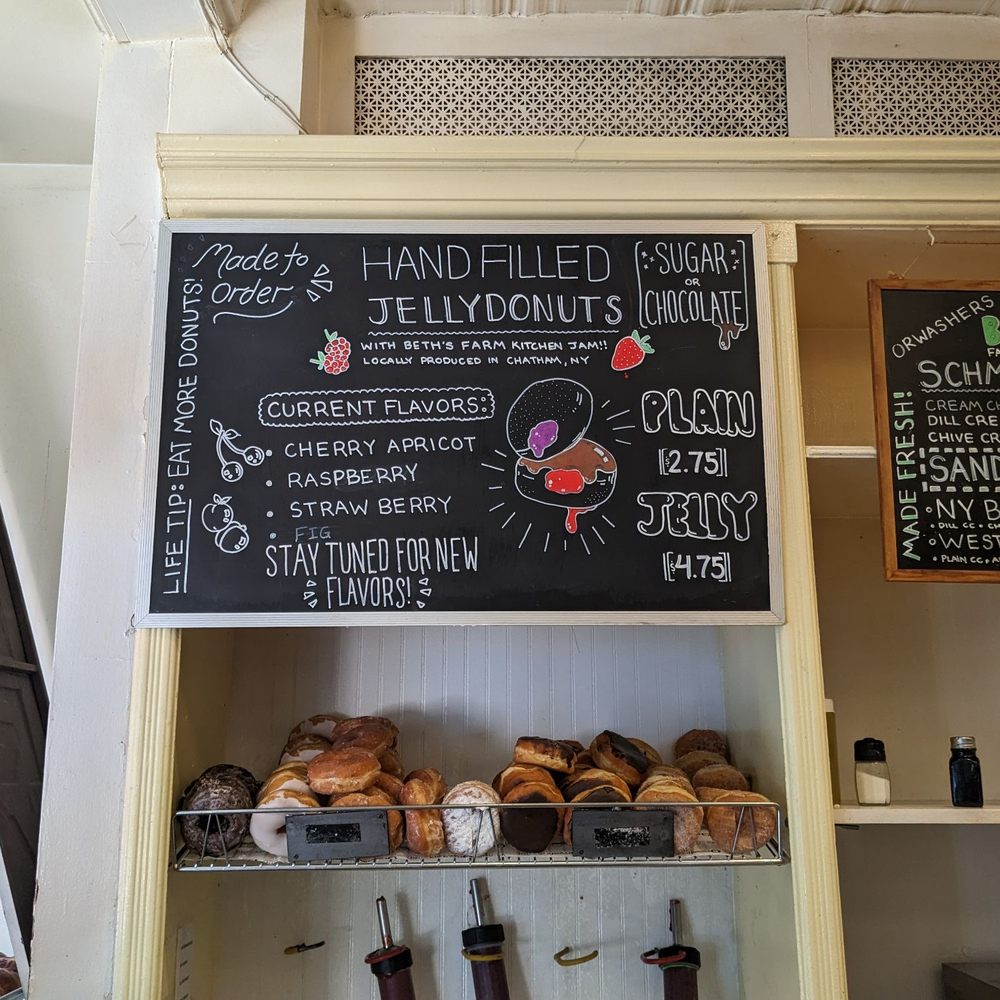 LIFE TIP: EAT MORE DONUTS!
Made to
Order
HAND FILLED
JELLYDONUTS
WITH BETH'S FARM KITCHEN JAM!!
LOCALLY PRODUCED IN CHATHAM, NY
SUGAR
OR
CHOCOLATE
CURRENT FLAVORS:
• CHERRY APRICOT
• RASPBERRY
• STRAW BERRY
• FIG
STAY TUNED FOR NEW
FLAVORS!
PLAIN
2.75
JELLY
4.75
ORWASHERS
MADE FRESH!
SCHM
CREAM CH
DILL CRE
CHIVE CR
SAND
• NY B
• DILL CC • CH
• WEST
• PLAIN CC • A